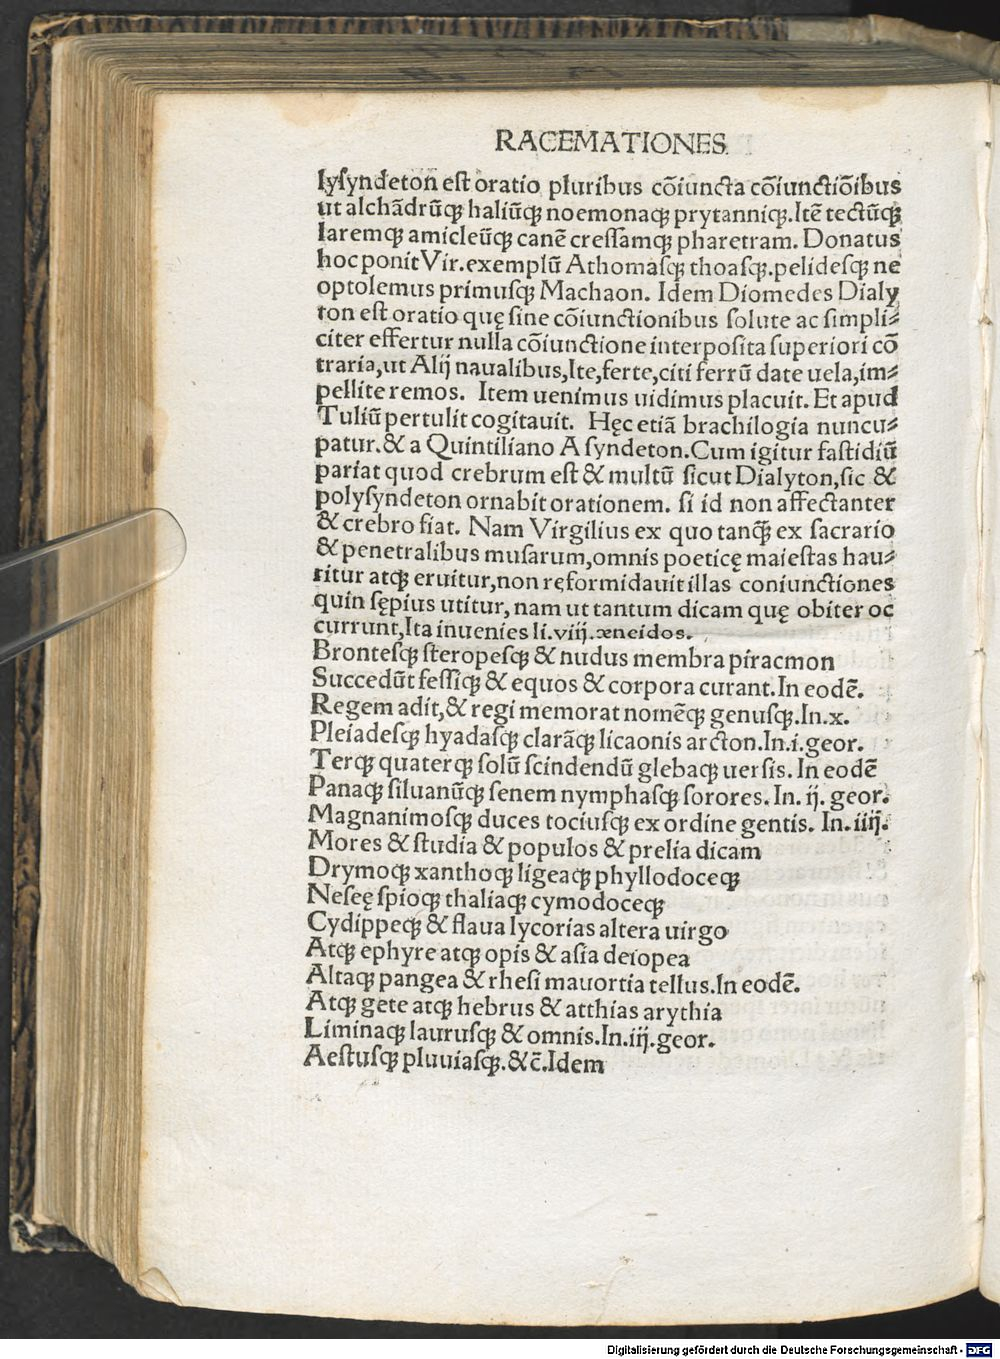 RACEMATIONES
lyſyndeton eſt oratio pluribus cōiuncta cōiunctiōibus
ut alchādrūqꝫ haliūqꝫ noemonaqꝫ prytanniqꝫ. Itē tectūqꝫ
laremqꝫ amicleūqꝫ canē creſſamqꝫ pharetram. Donatus
hoc ponit Vir. exemplū Athomaſqꝫ thoaſqꝫ. pelideſqꝫ ne
optolemus primuſqꝫ Machaon. Idem Diomedes Dialy
ton eſt oratio quę ſine cōiunctionibus ſolute ac ſimpli⸗
citer effertur nulla cōiunctione interpoſita ſuperiori cō
traria, ut Alij naualibus, Ite, ferte, citi ferrū date uela, im⸗
pellite remos. Item uenimus uidimus placuit. Et apud
Tuliū pertulit cogitauit. Hęc etiā brachilogia nuncu⸗
patur. & a Quintiliano Aſyndeton. Cum igitur faſtidiū
pariat quod crebrum eſt & multū ſicut Dialyton, ſic &
polyſyndeton ornabit orationem. ſi id non affectanter
& crebro fiat. Nam Virgilius ex quo tanqꝫ̄ ex ſacrario
& penetralibus muſarum, omnis poeticę maieſtas hau⸗
ritur atqꝫ eruitur, non reformidauit illas coniunctiones
quin ſępius utitur, nam ut tantum dicam quę obiter oc
currunt, Ita inuenies li. viij. æneidos.
Bronteſqꝫ ſteropeſqꝫ & nudus membra piracmon
Succedūt feſſiqꝫ & equos & corpora curant. In eodē.
Regem adit, & regi memorat nomēqꝫ genuſqꝫ. In. x.
Pleiadeſqꝫ hyadaſqꝫ clarāqꝫ licaonis arcton. In. i. geor.
Terqꝫ quaterqꝫ ſolū ſcindendū glebaqꝫ uerſis. In eodē
Panaqꝫ ſiluanūqꝫ ſenem nymphaſqꝫ ſorores. In. ij. geor.
Magnanimoſqꝫ duces tociuſqꝫ ex ordine gentis. In. iiij.
Mores & ſtudia & populos & prelia dicam
Drymoqꝫ xanthoqꝫ ligeaqꝫ phyllodoceqꝫ
Neſeę ſpioqꝫ thaliaqꝫ cymodoceqꝫ
Cydippeqꝫ & flaua lycorias altera uirgo
Atqꝫ ephyre atqꝫ opis & aſia deiopea
Altaqꝫ pangea & rheſi mauortia tellus. In eodē.
Atqꝫ gete atqꝫ hebrus & atthias arythia
Liminaqꝫ lauruſqꝫ & omnis. In. iij. geor.
Aeſtuſqꝫ pluuiaſqꝫ. & c̄. Idem
Digitalisierung gefördert durch die Deutsche Forschungsgemeinschaft - DFG